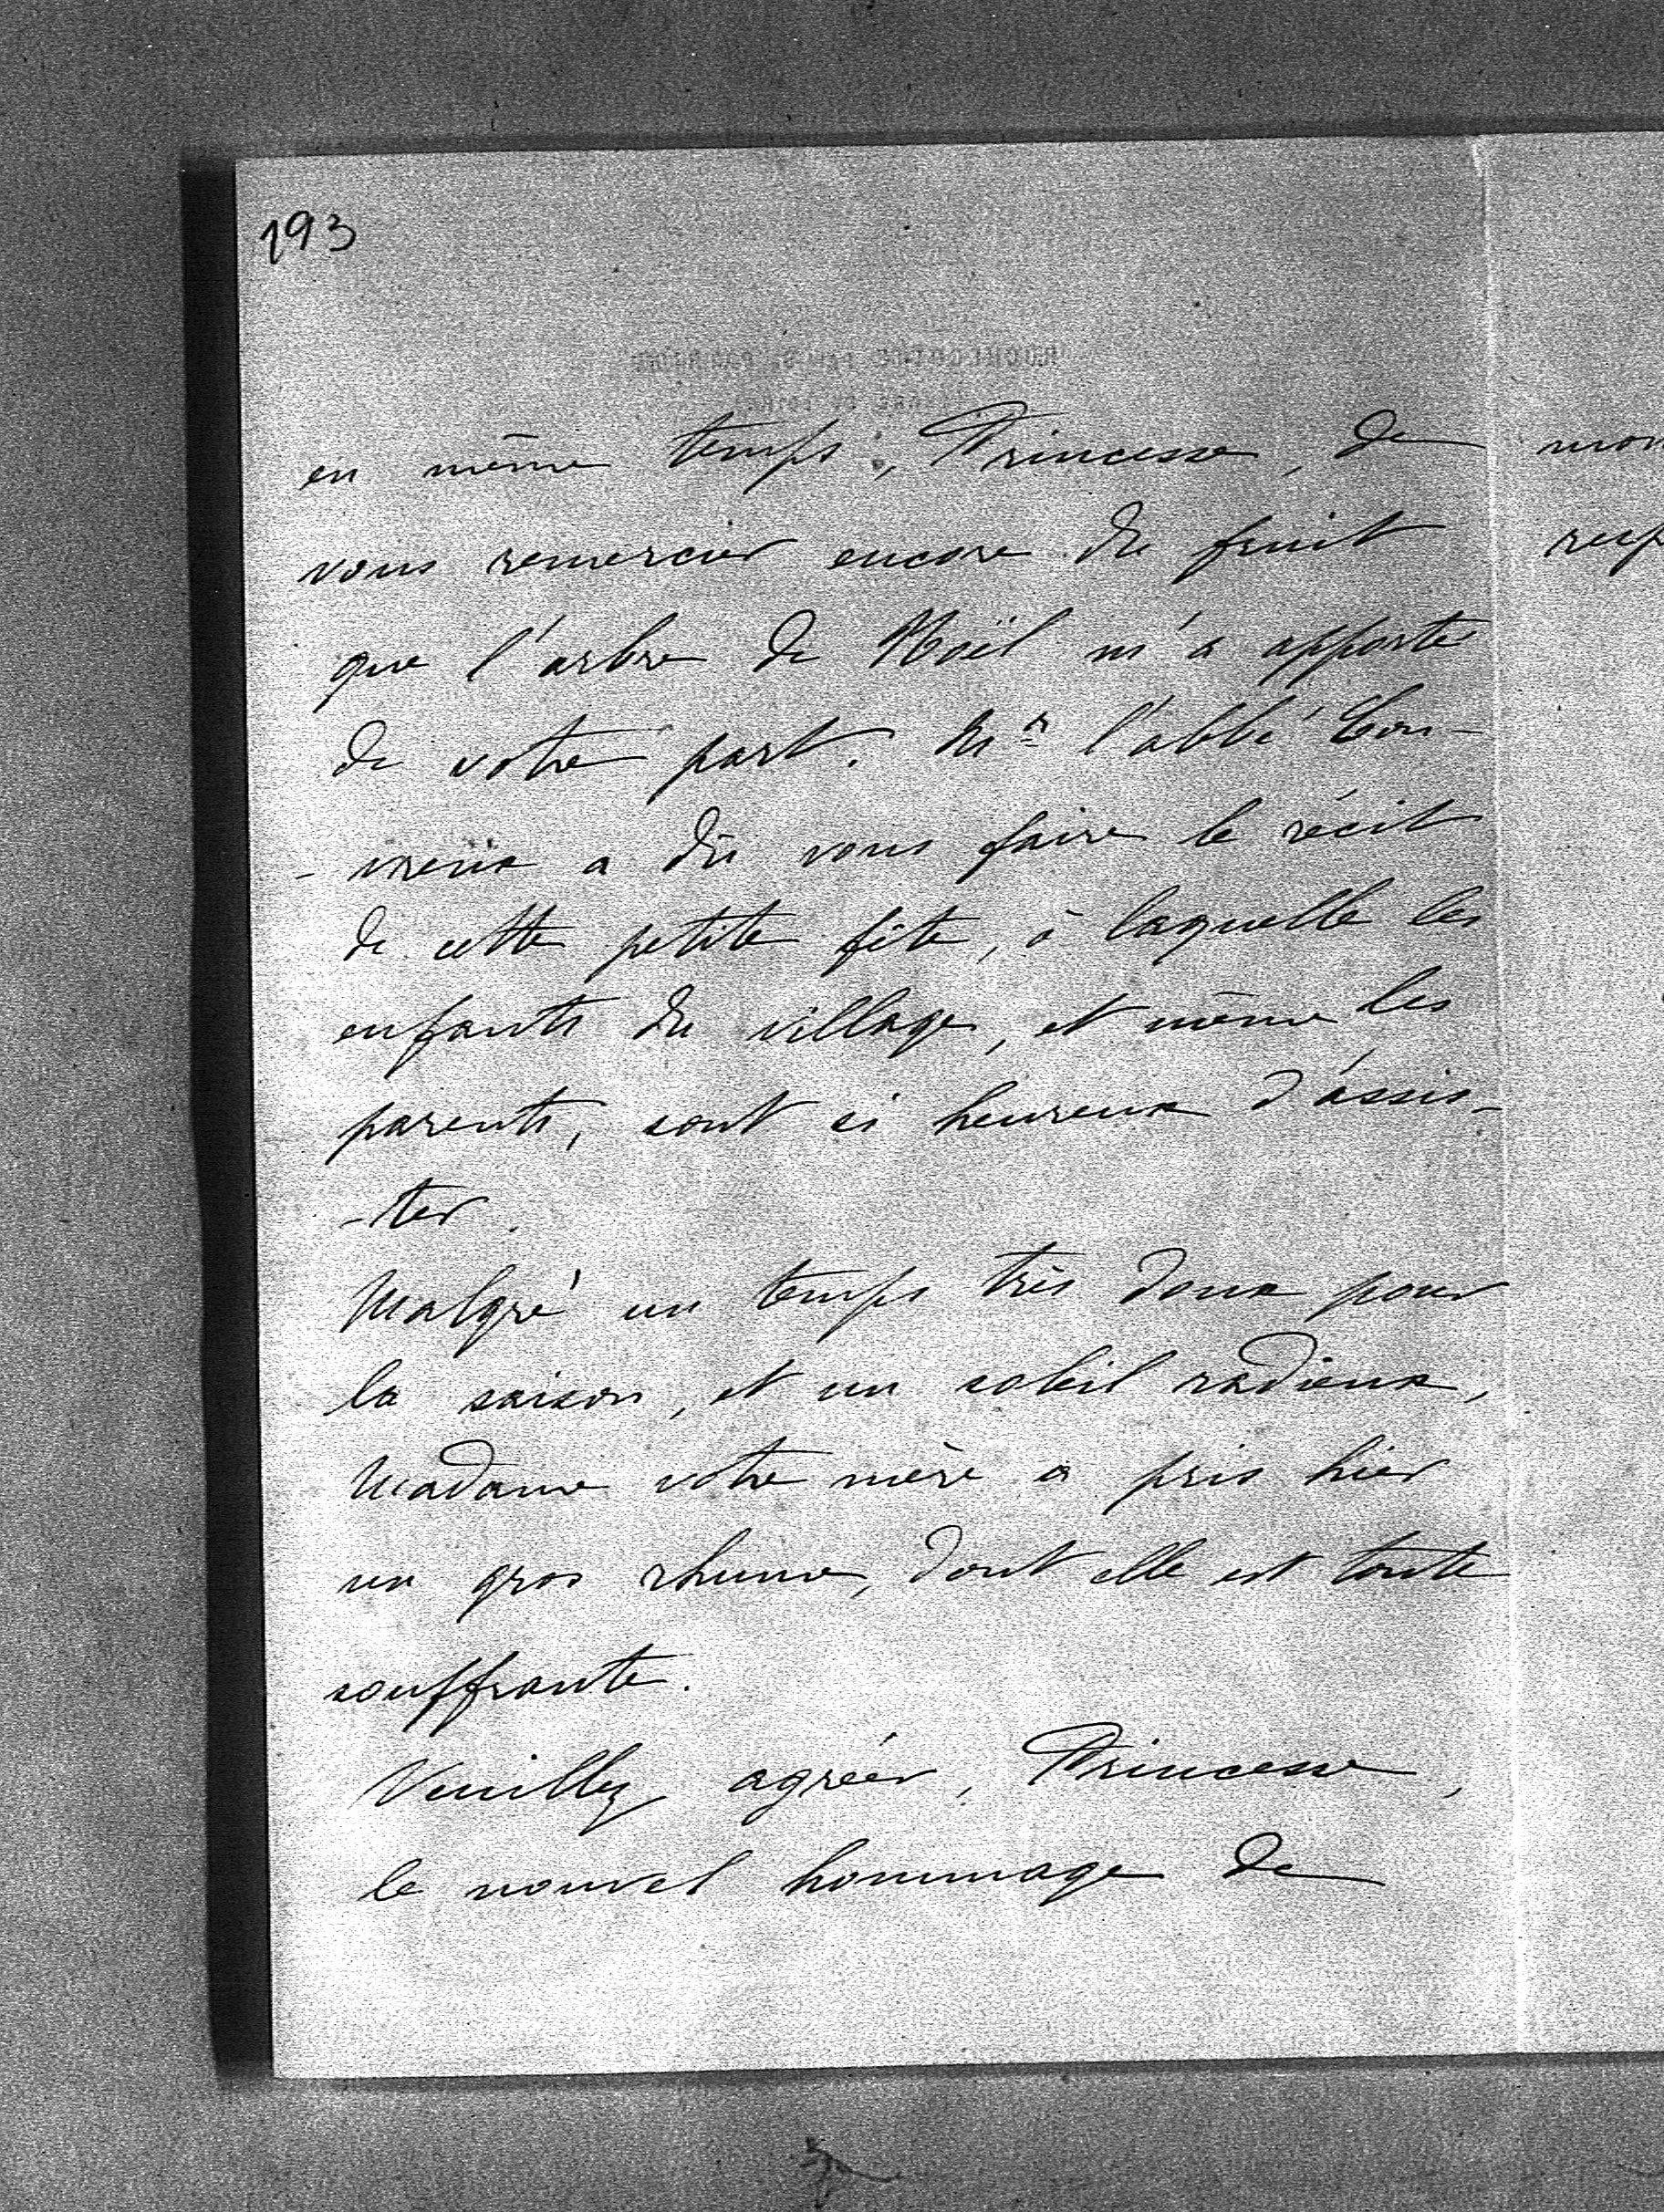 193
en même temps, Princesse, de
vous remercier encore du fruit
que l'arbre de Noël m'a apporté
de votre part. Mr l'abbé Cou-
-vreux a dû vous faire le récit
de cette petite fête, à laquelle les
enfants du village, et même les
parents, sont si heureux d'assis-
-ter.
Malgré un temps très doux pour
la saison, et un soleil radieux,
Madame votre mère a pris hier
un gros rhume, dont elle est toute
souffrante.
Veuillez agréer, Princesse,
le nouvel hommage de
mon